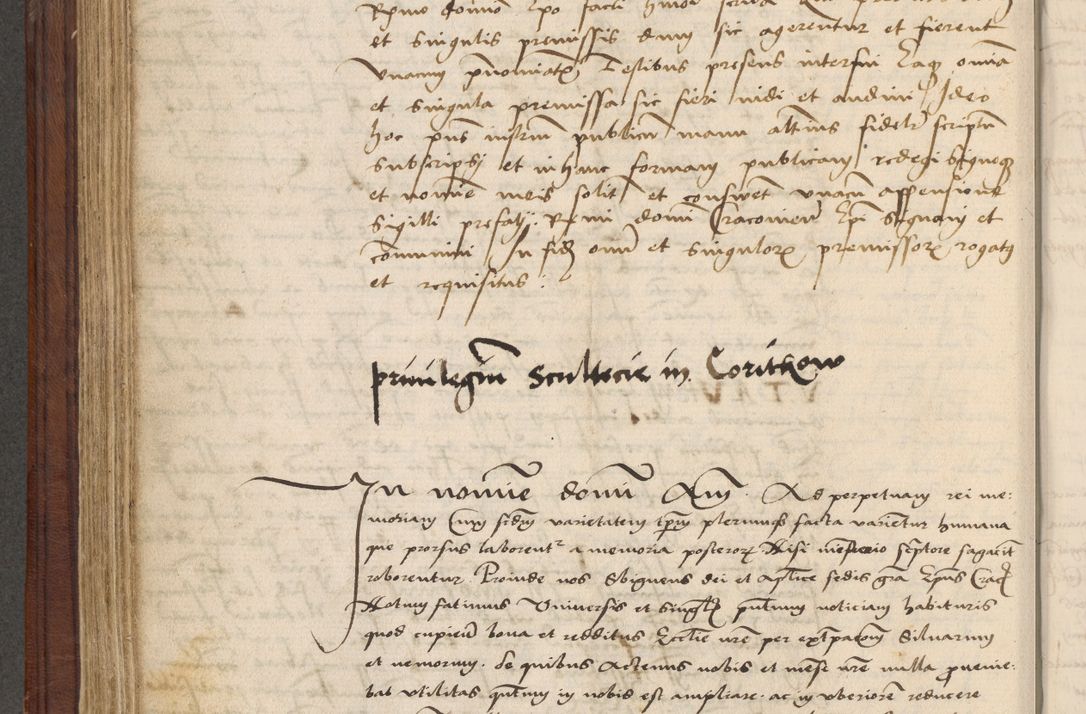 et singulis premissis dum sic agerentur et fierent
vnacum pnomiatis Testibus presens interfui Eaque omnia
et singula premissa sic fieri vidi et audiui Ideo
hoc pns instrm publicum manu alterius fideliter scriptum
subscripsi et in hanc formam publicam redegi signoque
et nomine meis solitis et consuet vnacum appensione
Sigilli prefati Rmi domi Cracovien Epi signaui et
communiui In fidem omium et singulorum premissorum rogatus
et requisitus.
priuilegium Scultecie in Coritkow
In nomine domini Amen. Ad perpetuam rei me:
moriam Cum scdm varietatem tpm plerumque facta varientur humana
que prorsus laborent a memoria posterorum Nisi scptore sagacit
roborentur. Proinde nos Sbigneus dei et Aplice sedis gra Epus Crac
Notum facimus Vniuersis et singlis pntium noticiam habituris
quod cupien bona et redditus Ecclie nre per extpacom Siluarum
et nemorum. de quibus actenus nobis et mense nre nulla proueniе:
bat vtilitas qntum in nobis est ampliare. ac in vberiorem reducere